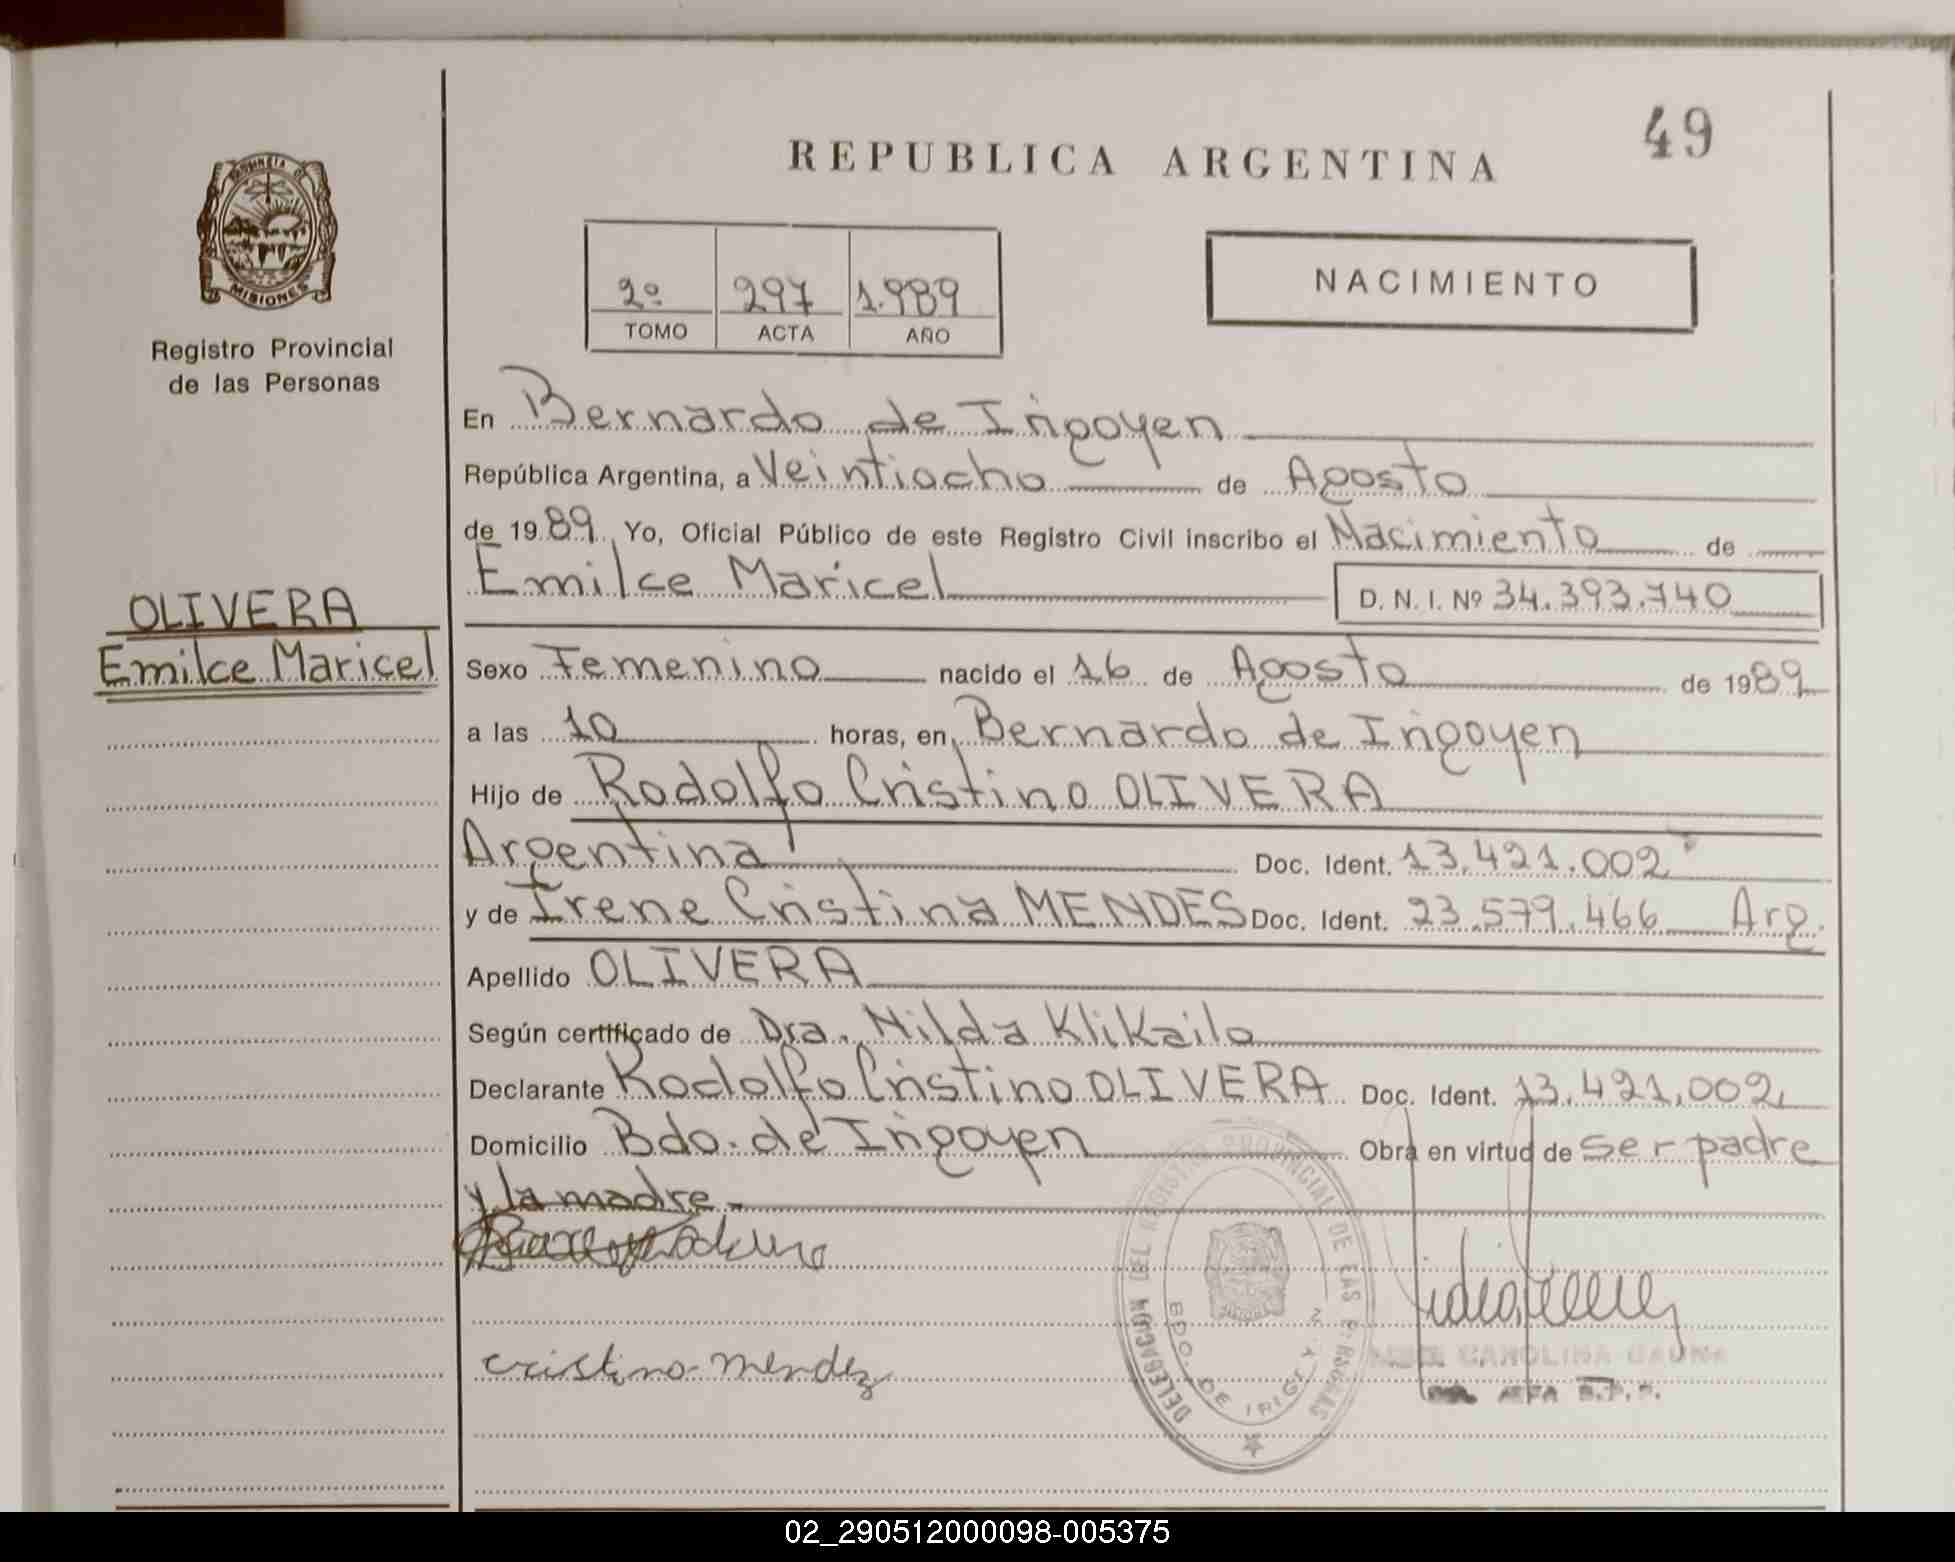 49
REPUBLICA ARGENTINA
PROVINCIA DE
MISIONES
Registro Provincial
de las Personas
2º 297 1.989
TOMO ACTA AÑO
NACIMIENTO
En Bernardo de Irigoyen
República Argentina, a Veintiocho de Agosto
de 1989 Yo, Oficial Público de este Registro Civil inscribo el Nacimiento de
Emilce Maricel D. N. I. Nº 34.393.740
OLIVERA
Emilce Maricel
Sexo Femenino nacido el 16 de Agosto de 1989
a las 10 horas, en Bernardo de Irigoyen
Hijo de Rodolfo Cristino OLIVERA
Argentina Doc. Ident. 13.421.002
y de Irene Cristina MENDES Doc. Ident. 23.579.466 Arg.
Apellido OLIVERA
Según certificado de Dra. Nilda Klikailo
Declarante Rodolfo Cristino OLIVERA Doc. Ident. 13.421.002
Domicilio Bdo. de Irigoyen Obra en virtud de ser padre
y la madre.-
cristino mendez
DELEGACION DEL REGISTRO PROVINCIAL DE LAS PERSONAS
BDO. DE IRIGOYEN
CAROLINA GAUNA
02_290512000098-005375